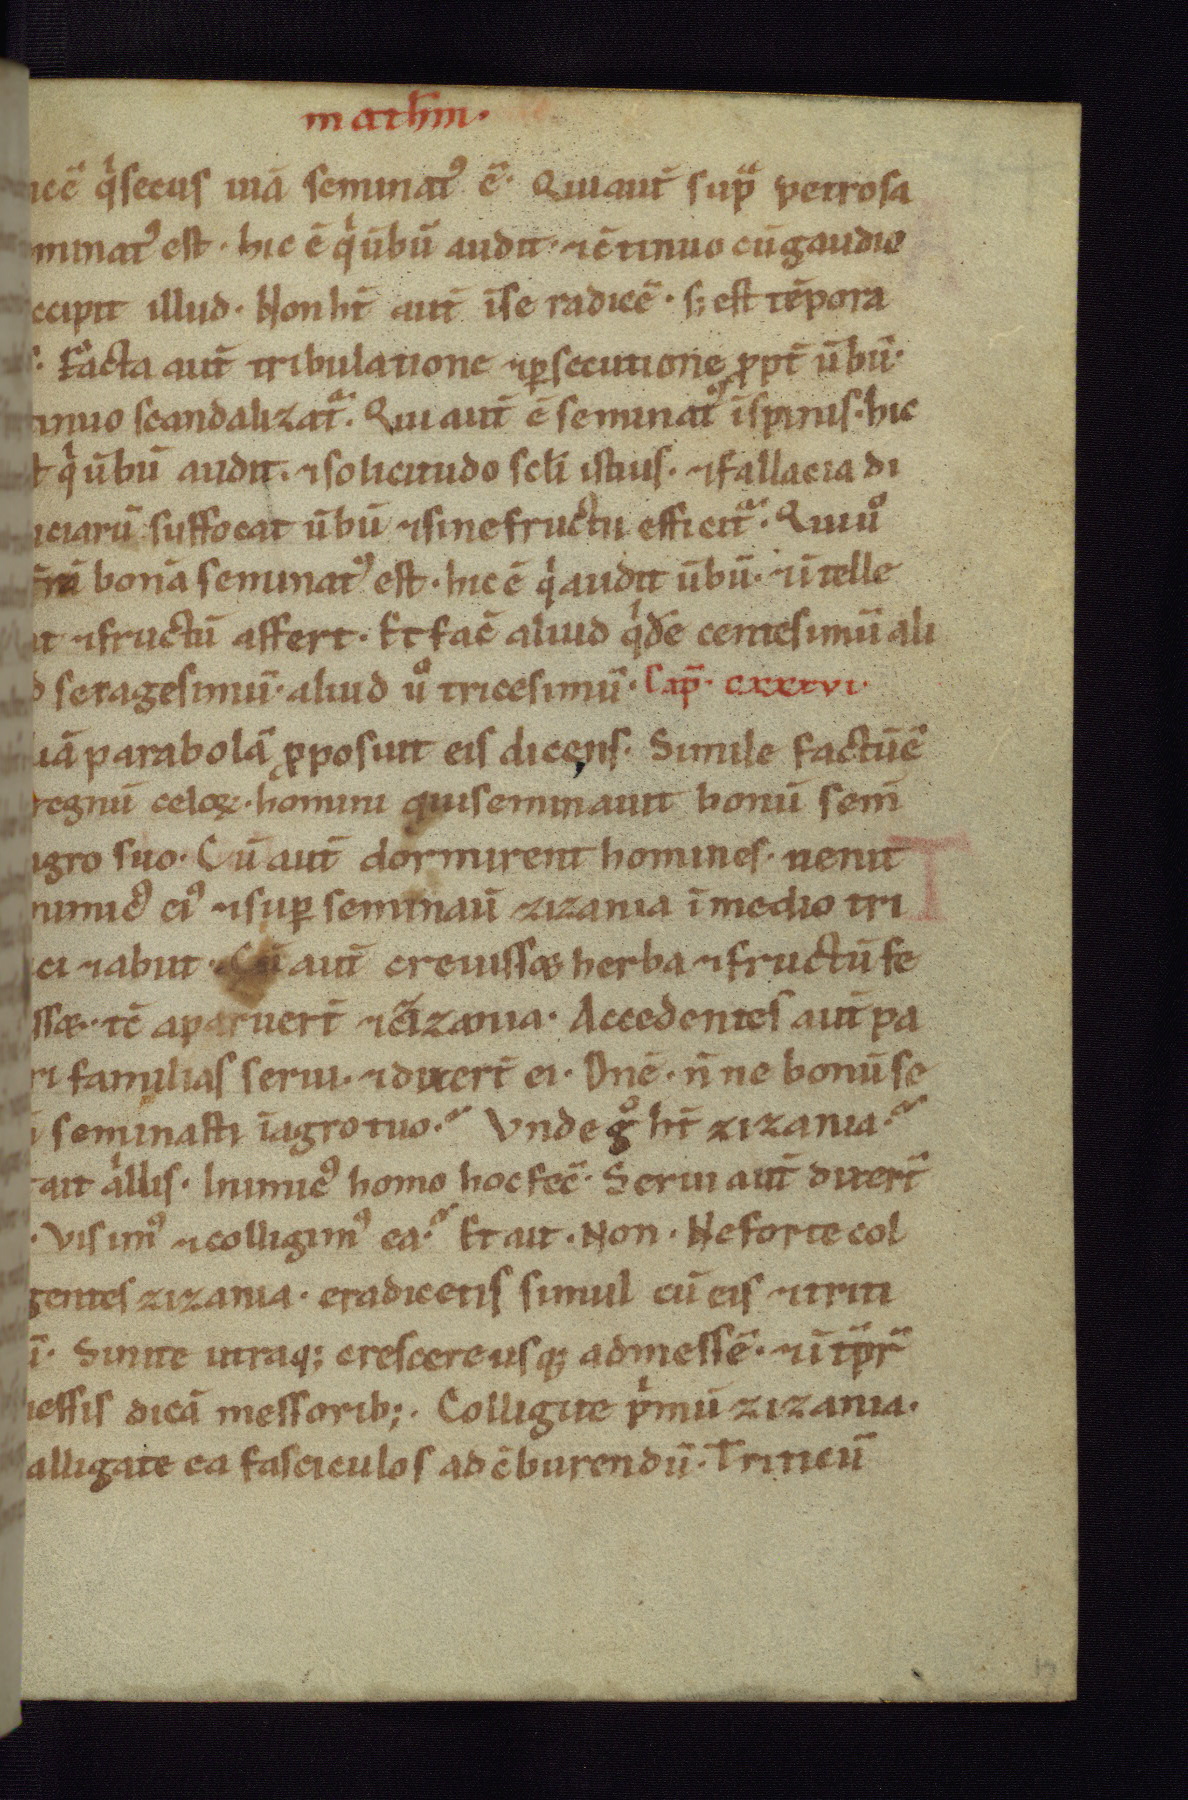 mathm̄.
icē q̇secus uiā seminatꝰ ē. Qui aut̄ supᵃ petrosa
minatꝰ est. hic ē q̇ ūbū audit. ⁊ ɔ̄tinuo cū gaudio
ccipit illud. Non ht̄ aut̄ ī se radicē. s; est tēpora
s. Facta aut̄ tribulatione ⁊ ꝑsecutione ꝓpt̄ ūbū.
inuo scandalizatᵃ. Qui aut̄ ē seminatꝰ ī spinis. hic
t q̇ ūbū audit. ⁊ solicitudo scl̄i istius. ⁊ fallacia di
iciarū suffocat ūbū ⁊ sine fructu efficitᵃ. Qui uͦ
t̄rā bonā seminatꝰ est. hic ē q̇ audit ūbū. ⁊ ītelle
it ⁊ fructū affert. Et fac̄ aliud q̇dē centesimū ali
d sexagesimū. aliud uͦ tricesimū. Cap̄. cxxxvi.
liā parabolā ꝓposuit eis dicens. Simile factū ē
regnū celoꝝ. homini qui seminauit bonū sem̄
agro suo. Cū aut̄ dormirent homines. uenit T
nimicꝰ eiꝰ ⁊ suꝑ seminaū zizania ī medio tri
ci ⁊ abiit. Cū aut̄ creuiss& herba ⁊ fructū fe
ss&. tc̄ aparuert̄ ⁊ ɔ̄izania. Accedentes aut̄ pa
ri familias serui. ⁊ dixert̄ ei. Dnē. n̄ne bonū se
seminasti ī agro tuo. Unde gͦ ht̄ zizania.
ait illis. Inimicꝰ homo hoc fec̄. Serui aut̄ dixert̄
. Vis imꝰ ⁊ colligimꝰ ea. Et ait. Non. Ne forte col
gentes zizania. eradicetis simul cū eis ⁊ triti
ū. Sinite utraq; crescere usq; ad messē. ⁊ ī tp̄r̄
iessis dicā messorib;. Colligite p̍mū zizania.
alligate ea fasciculos ad ɔ̄burendū. Triticū